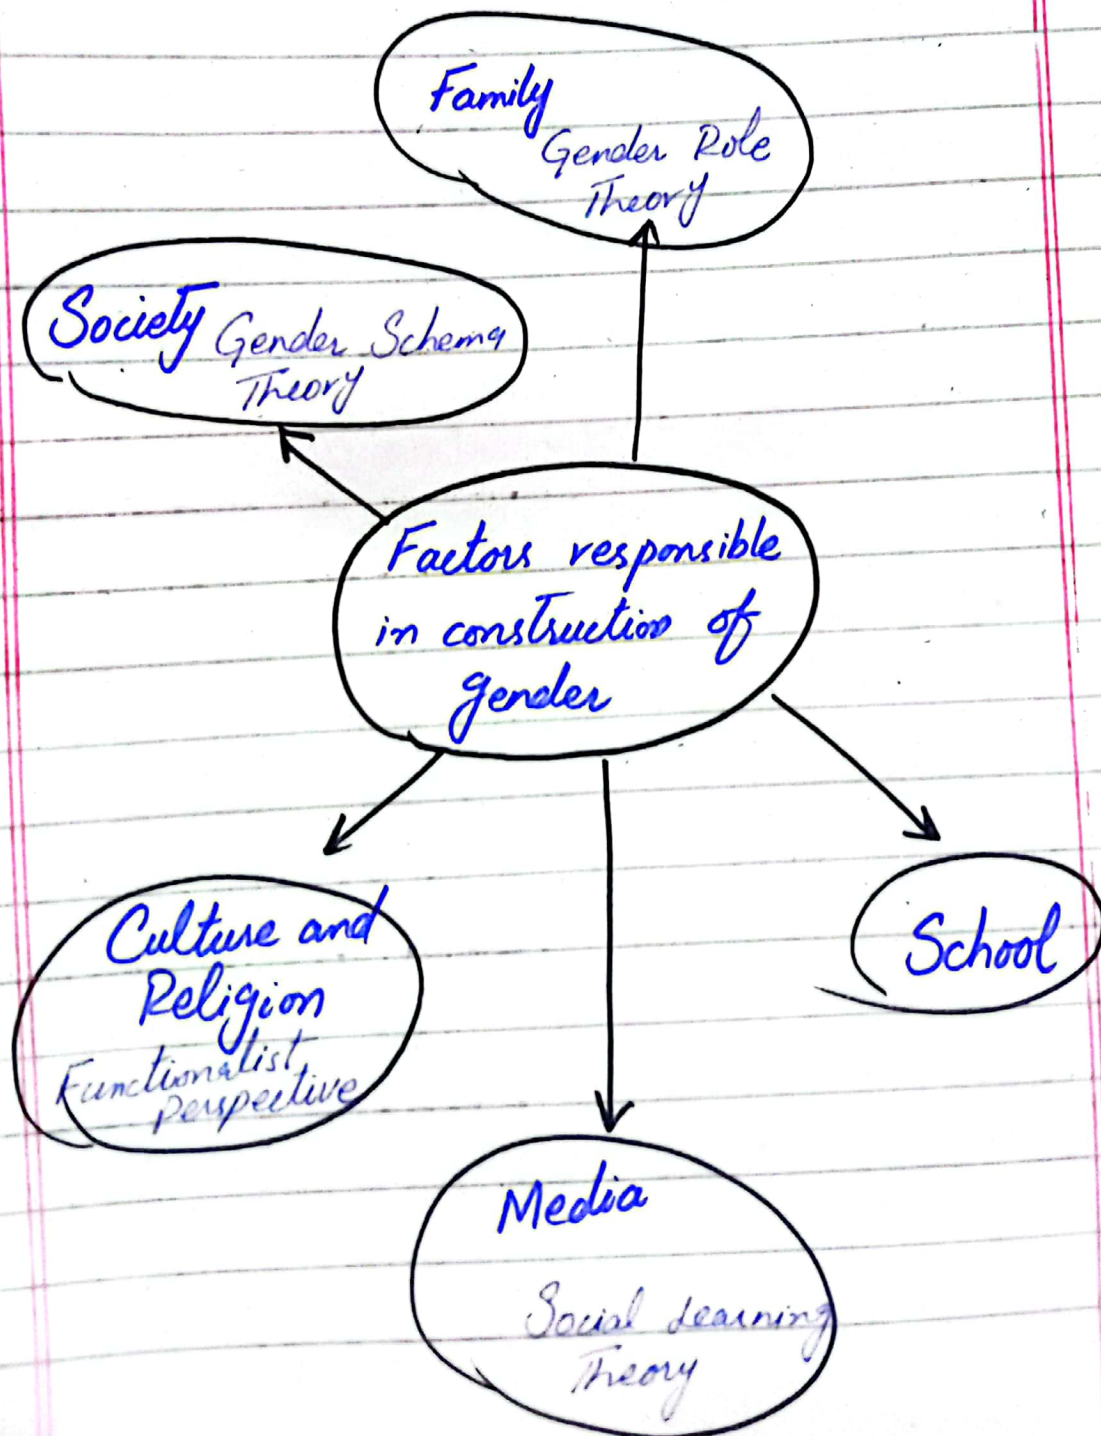 Family
Gender Role
Theory
Society Gender Schema
Theory
Factors responsible
in construction of
gender
Culture and
Religion
Functionalist
Perspective
School
Media
Social Learning
Theory